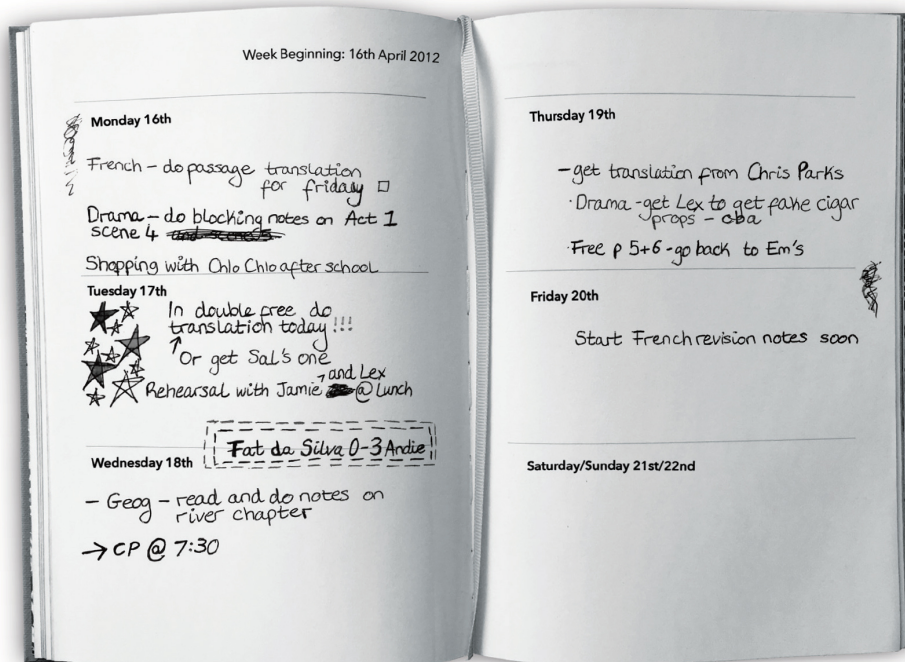 Week Beginning: 16th April 2012
Monday 16th
French – do passage translation
for friday
Drama – do blocking notes on Act 1
scene 4
Shopping with Chlo Chlo after school
Tuesday 17th
In double free do
translation today !!!
Or get Sal's one
and Lex
Rehearsal with Jamie @ Lunch
Fat da Silva 0-3 Andie
Wednesday 18th
– Geog – read and do notes on
river chapter
→ CP @ 7:30
Thursday 19th
- get translation from Chris Parks
· Drama - get Lex to get fake cigar
props – cba
· Free p 5+6 - go back to Em's
Friday 20th
Start French revision notes soon
Saturday/Sunday 21st/22nd